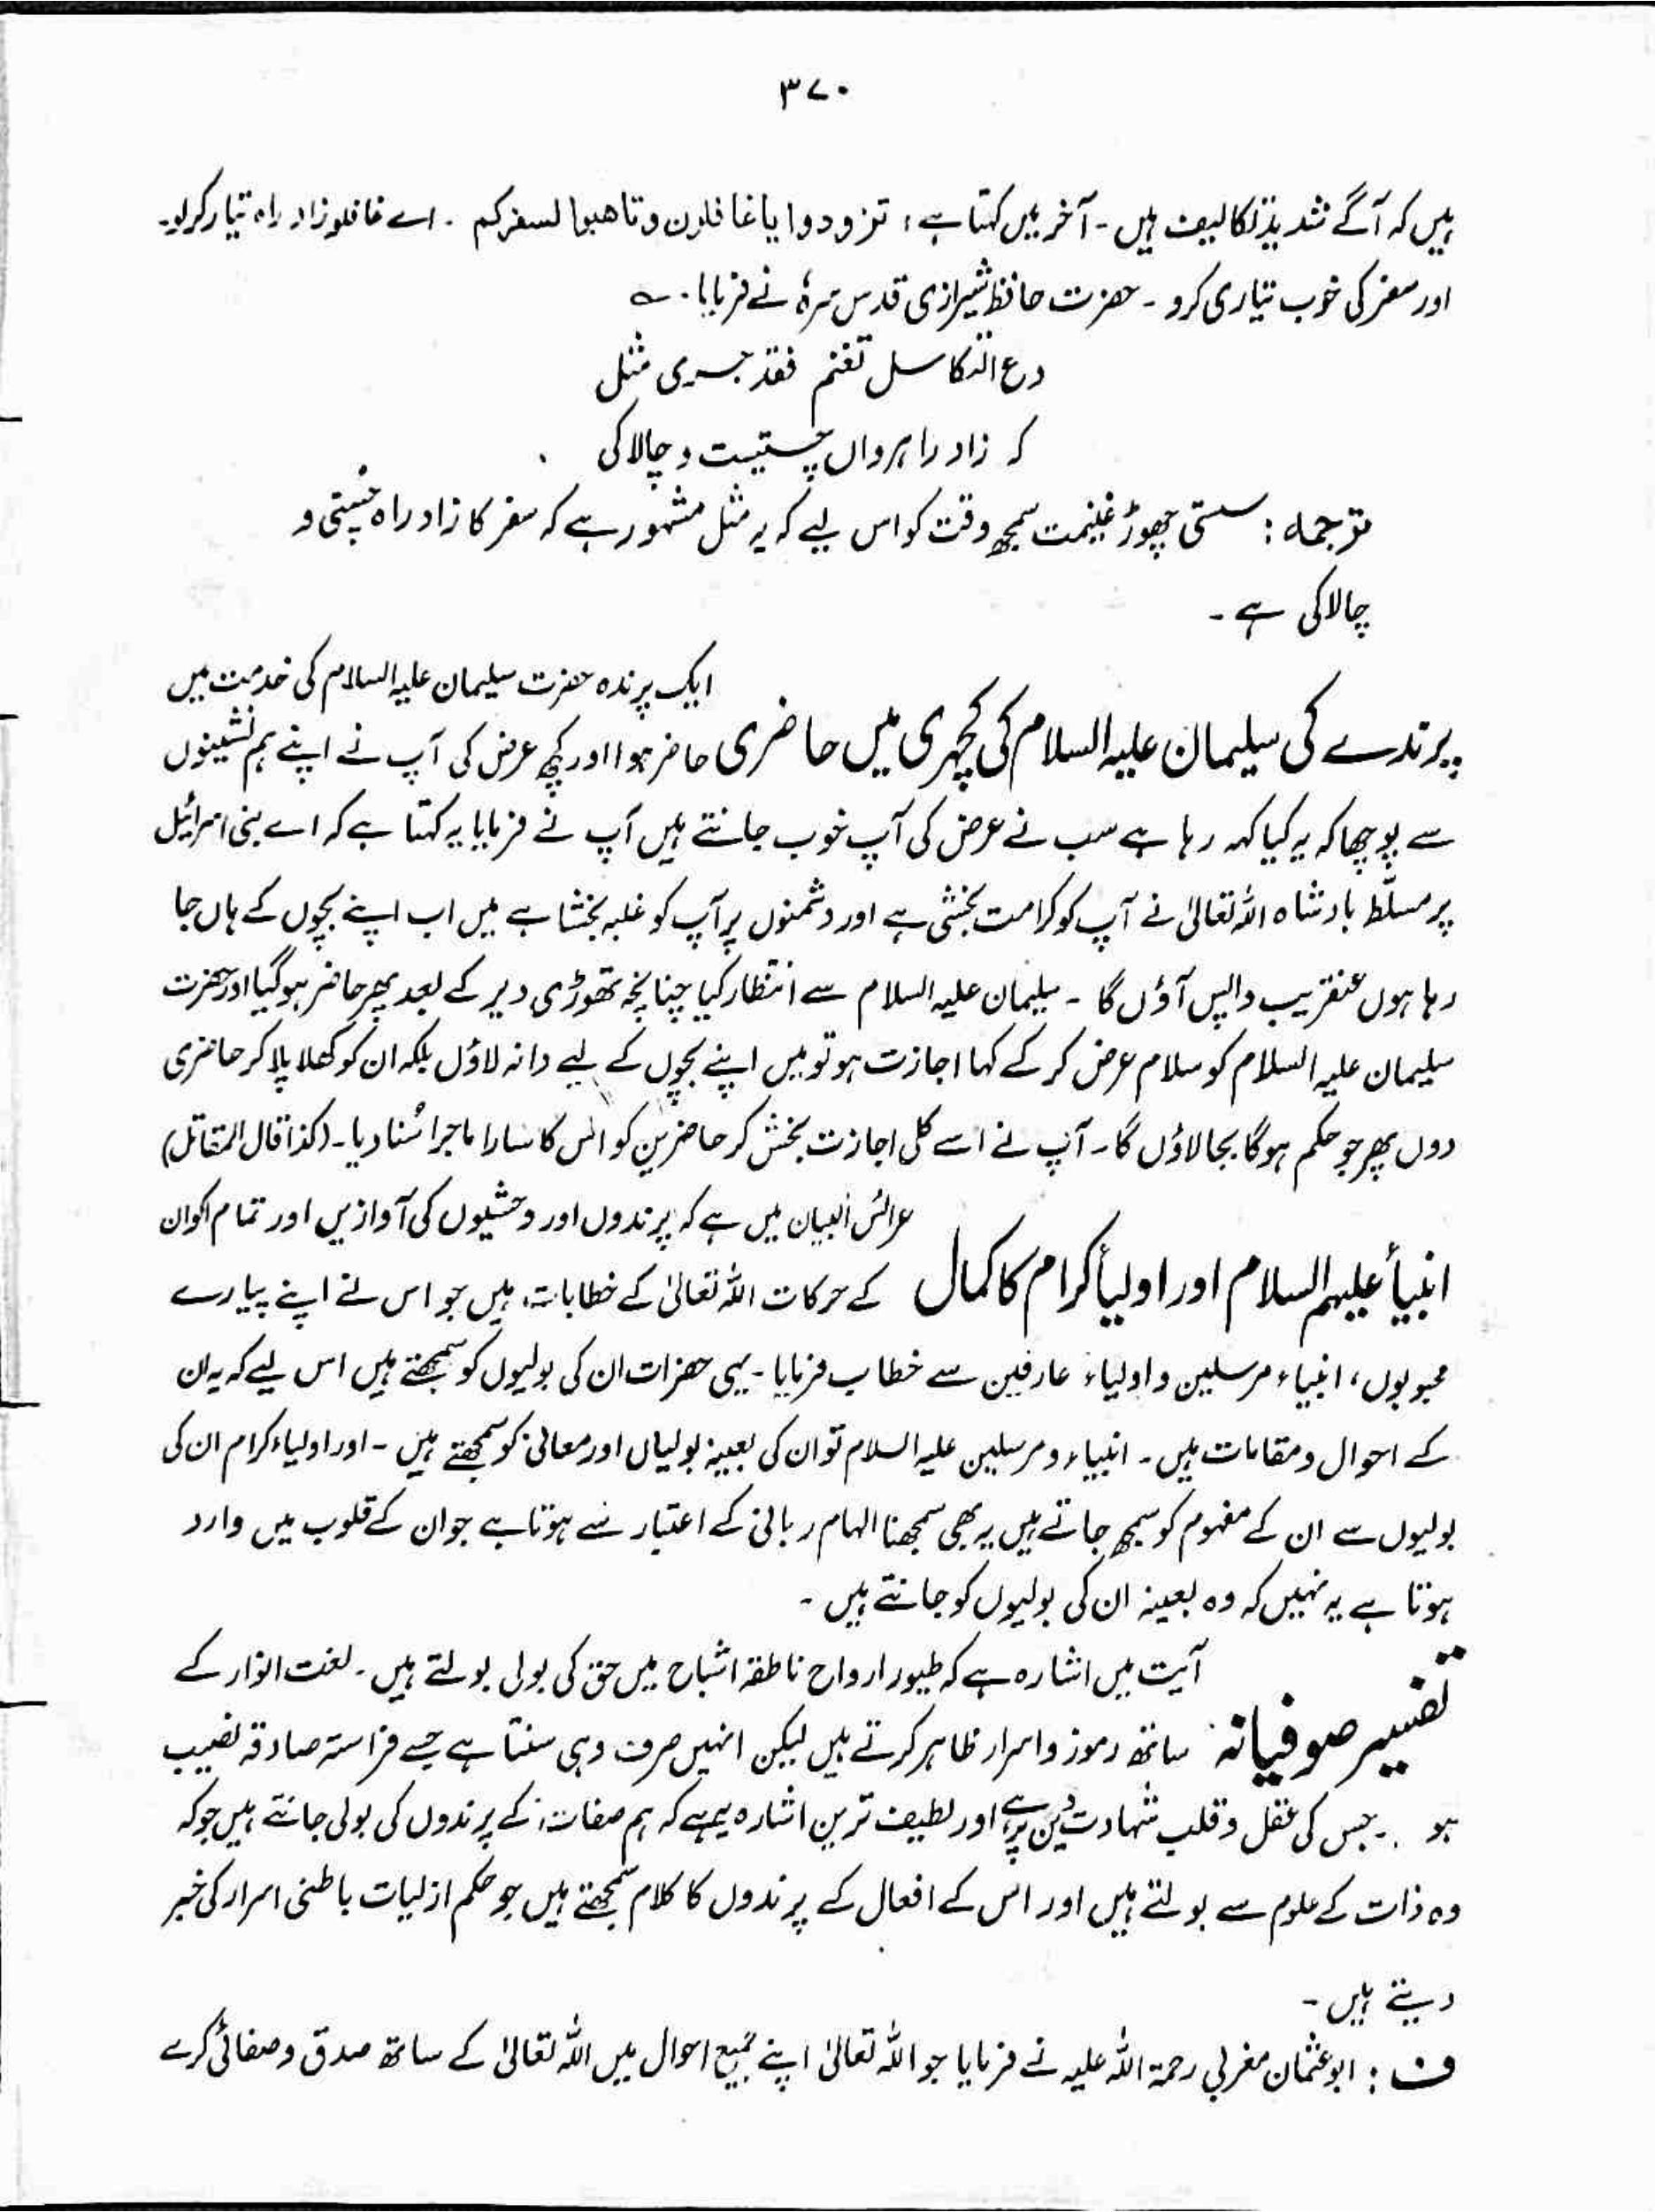 ۳۷۰
ہیں کہ آگے شدید تکالیف ہیں ۔ آخر میں کہتا ہے ؛ تزودوا یا غافلون وتاھبوا لسفرکم ۔ اے غافلو زاد راہ تیار کرلو۔
اور سفر کی خوب تیاری کرو ۔ حضرت حافظ شیرازی قدس سرہٗ نے فرمایا ۔ ؎
دع التکاسل تغنم فقد جری مثل
کہ زاد راہرواں چستیست و چالاکی
ترجمہ : سستی چھوڑ غنیمت سمجھ وقت کو اس لیے کہ یہ مثل مشہور ہے کہ سفر کا زاد راہ چُستی و
چالاکی ہے ۔
پرندے کی سلیمان علیہ السلام کی کچہری میں حاضری
ایک پرندہ حضرت سلیمان علیہ السلام کی خدمت میں
حاضر ہوا اور کچھ عرض کی آپ نے اپنے ہم نشینوں
سے پوچھا کہ یہ کیا کہہ رہا ہے سب نے عرض کی آپ خوب جانتے ہیں آپ نے فرمایا یہ کہتا ہے کہ اے بنی اسرائیل
پر مسلّط بادشاہ اللہ تعالیٰ نے آپ کو کرامت بخشی ہے اور دشمنوں پر آپ کو غلبہ بخشا ہے میں اب اپنے بچوں کے ہاں جا
رہا ہوں عنقریب واپس آؤں گا ۔ سلیمان علیہ السلام سے انتظار کیا چنانچہ تھوڑی دیر کے بعد پھر حاضر ہوگیا اور حضرت
سلیمان علیہ السلام کو سلام عرض کر کے کہا اجازت ہو تو میں اپنے بچوں کے لیے دانہ لاؤں بلکہ ان کو کھلا پلا کر حاضری
دوں پھر جو حکم ہوگا بجا لاؤں گا ۔ آپ نے اسے کلی اجازت بخش کر حاضرین کو اس کا سارا ماجرا سُنا دیا ۔ (کذا قال المقاتل)
انبیأ علیہم السلام اور اولیأ کرام کا کمال
عرائس البیان میں ہے کہ پرندوں اور وحشیوں کی آوازیں اور تمام اکوان
کے حرکات اللہ تعالیٰ کے خطابات ہیں جو اس نے اپنے پیارے
محبوبوں ، انبیاء مرسلین و اولیاء عارفین سے خطاب فرمایا ۔ یہی حضرات ان کی بولیوں کو سمجھتے ہیں اس لیے کہ یہ ان
کے احوال و مقامات ہیں ۔ انبیاء و مرسلین علیہ السلام تو ان کی بعینہ بولیاں اور معانی کو سمجھتے ہیں ۔ اور اولیاء کرام ان کی
بولیوں سے ان کے مفہوم کو سمجھ جاتے ہیں یہ بھی سمجھنا الہام ربانی کے اعتبار سے ہوتا ہے جو ان کے قلوب میں وارد
ہوتا ہے یہ نہیں کہ وہ بعینہ ان کی بولیوں کو جانتے ہیں ۔
تفسیر صوفیانہ
آیت میں اشارہ ہے کہ طیور ارواح ناطقہ اشباح میں حق کی بولی بولتے ہیں ۔ لغت انوار کے
ساتھ رموز و اسرار ظاہر کرتے ہیں لیکن انہیں صرف وہی سنتا ہے جسے فراستہ صادقہ نصیب
ہو ۔ جس کی عقل و قلب شہادت دین پر ہے اور لطیف ترین اشارہ یہ ہے کہ ہم صفات کے پرندوں کی بولی جانتے ہیں جو کہ
وہ ذات کے علوم سے بولتے ہیں اور اس کے افعال کے پرندوں کا کلام سمجھتے ہیں جو حکم ازلیات باطنی اسرار کی خبر
دیتے ہیں ۔
ف : ابو عثمان مغربی رحمۃ اللہ علیہ نے فرمایا جو اللہ تعالیٰ اپنے جمیع احوال میں اللہ تعالیٰ کے ساتھ صدق و صفائی کرے